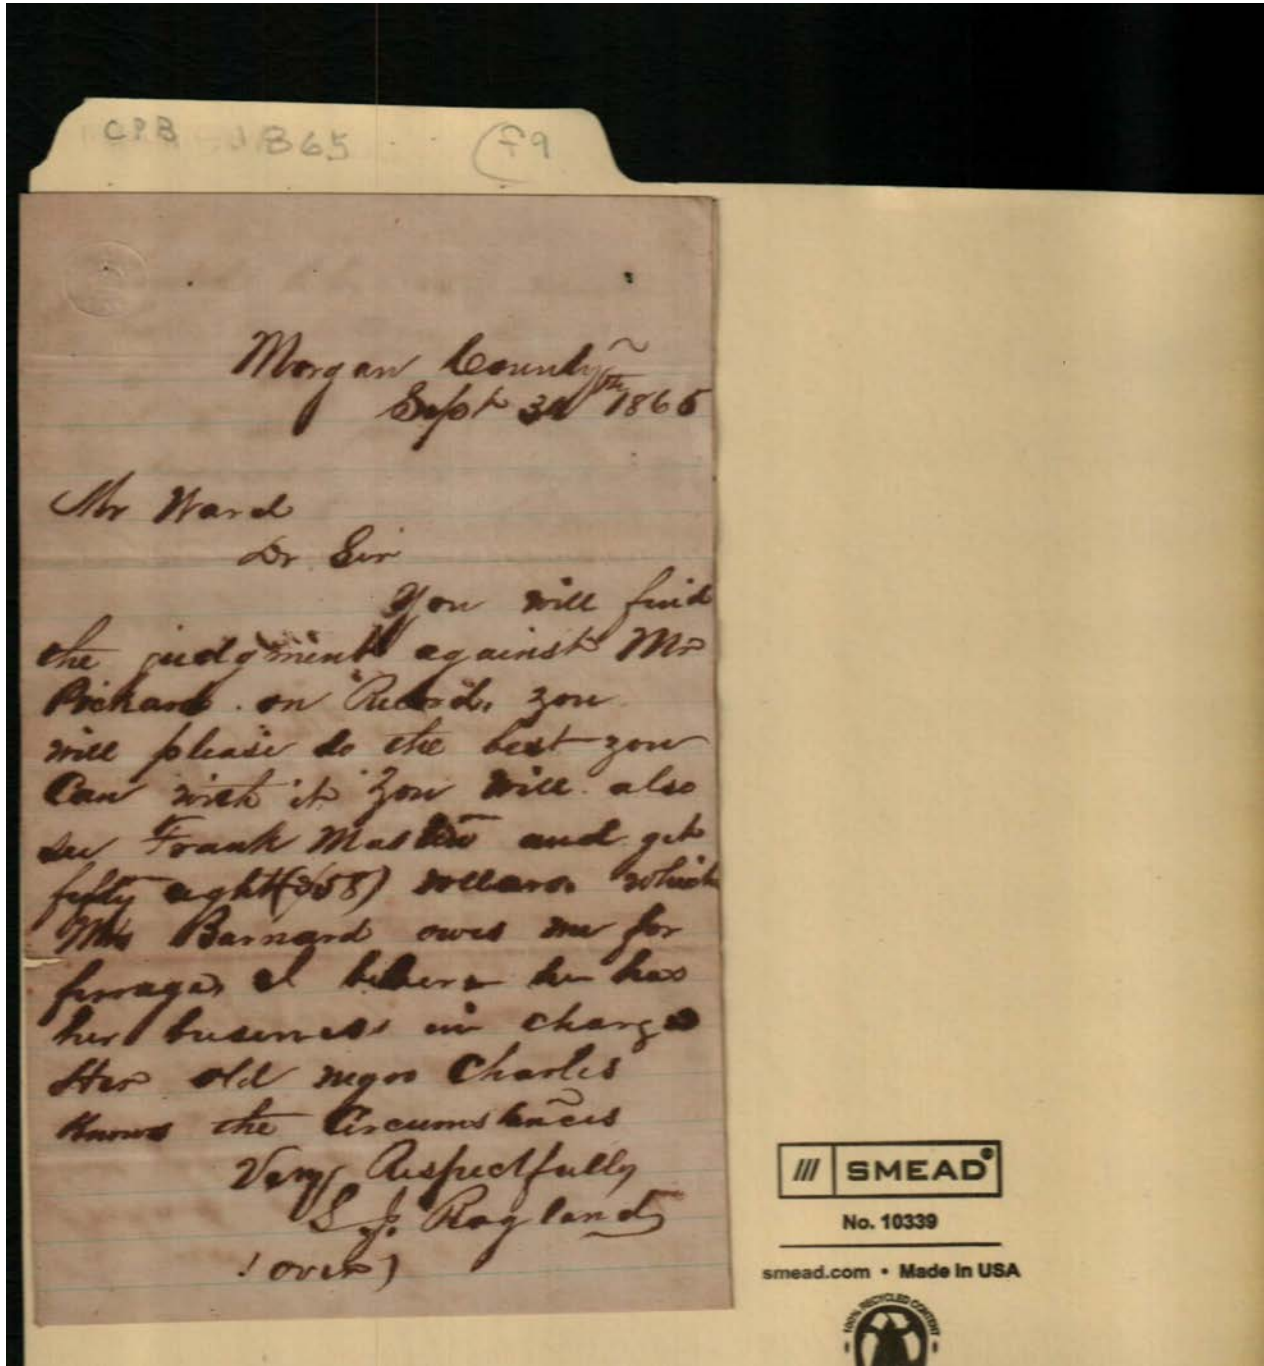 CPB 1865 (f9
Morgan County
Sept 30th 1865
Mr Ward
Dr Sir
You will find
the judgment against Mr
Pickard on Record, you
will please do the best you
Can with it you will also
see Frank and get
fifty eight ($58) dollars which
Mrs Barnard owes me for
forrage, I believe he has
her business in charge
Her old negro Charles
Knows the Circumstances
Very Respectfully
S. J. Ragland
(over)
SMEAD®
No. 10339
smead.com • Made in USA
100% RECYCLED CONTENT